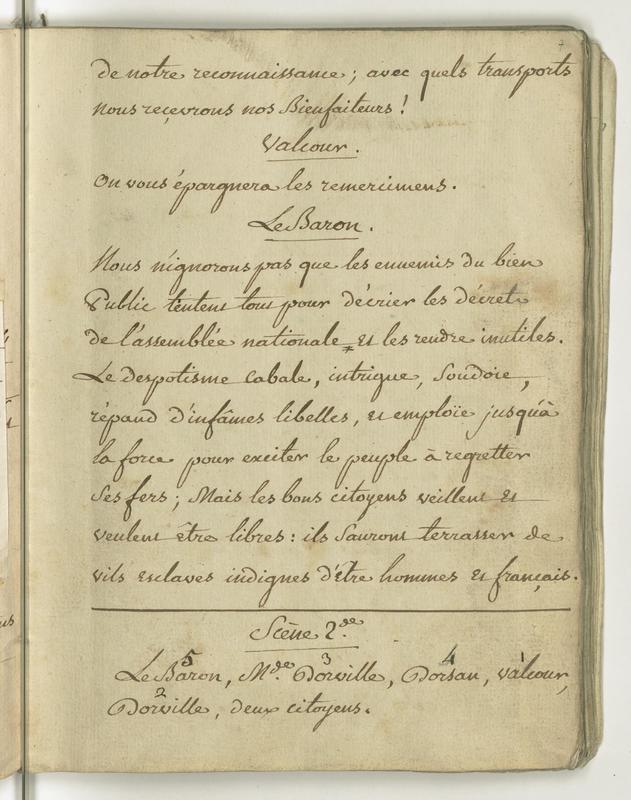 de notre reconnaissance ; avec quels transports
nous reçevrons nos Bienfaiteurs !
Valcour.
On vous épargnera les remercimens.
Le Baron.
Nous n'ignorons pas que les ennemis du bien
Public tentent tout pour décrier les décrets
de l'assemblée nationale et les rendre inutiles.
Le despotisme cabale, intrigue, soudoie,
répand d'infâmes libelles, et emploïe jusqu'à
la force pour exciter le peuple à regretter
ses fers ; Mais les bons citoyens veillent et
veulent être libres : ils sauront terrasser de
vils esclaves indignes d'être hommes et français.
Scène 2.de
5 3 4 1
Le Baron, M.de Dorville, Dorsan, valcour,
2
Dorville, deux citoyens.